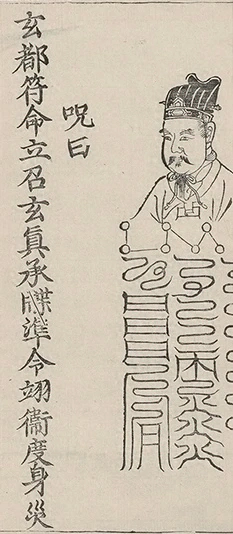 呪曰
玄都符命立召玄真承牒準令翊衛度身災